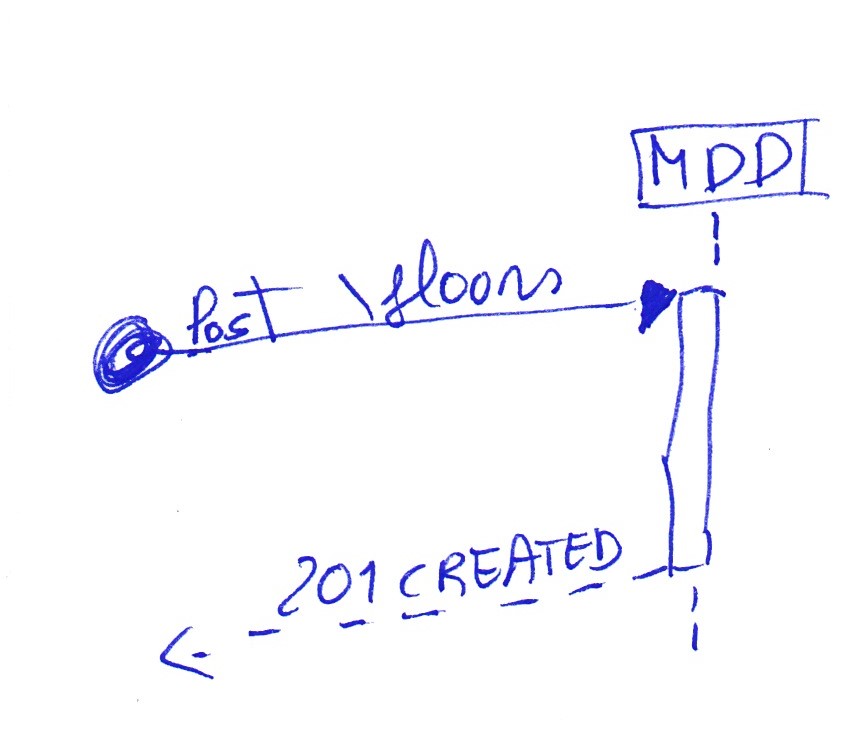 MDD
Post \floors
201 CREATED